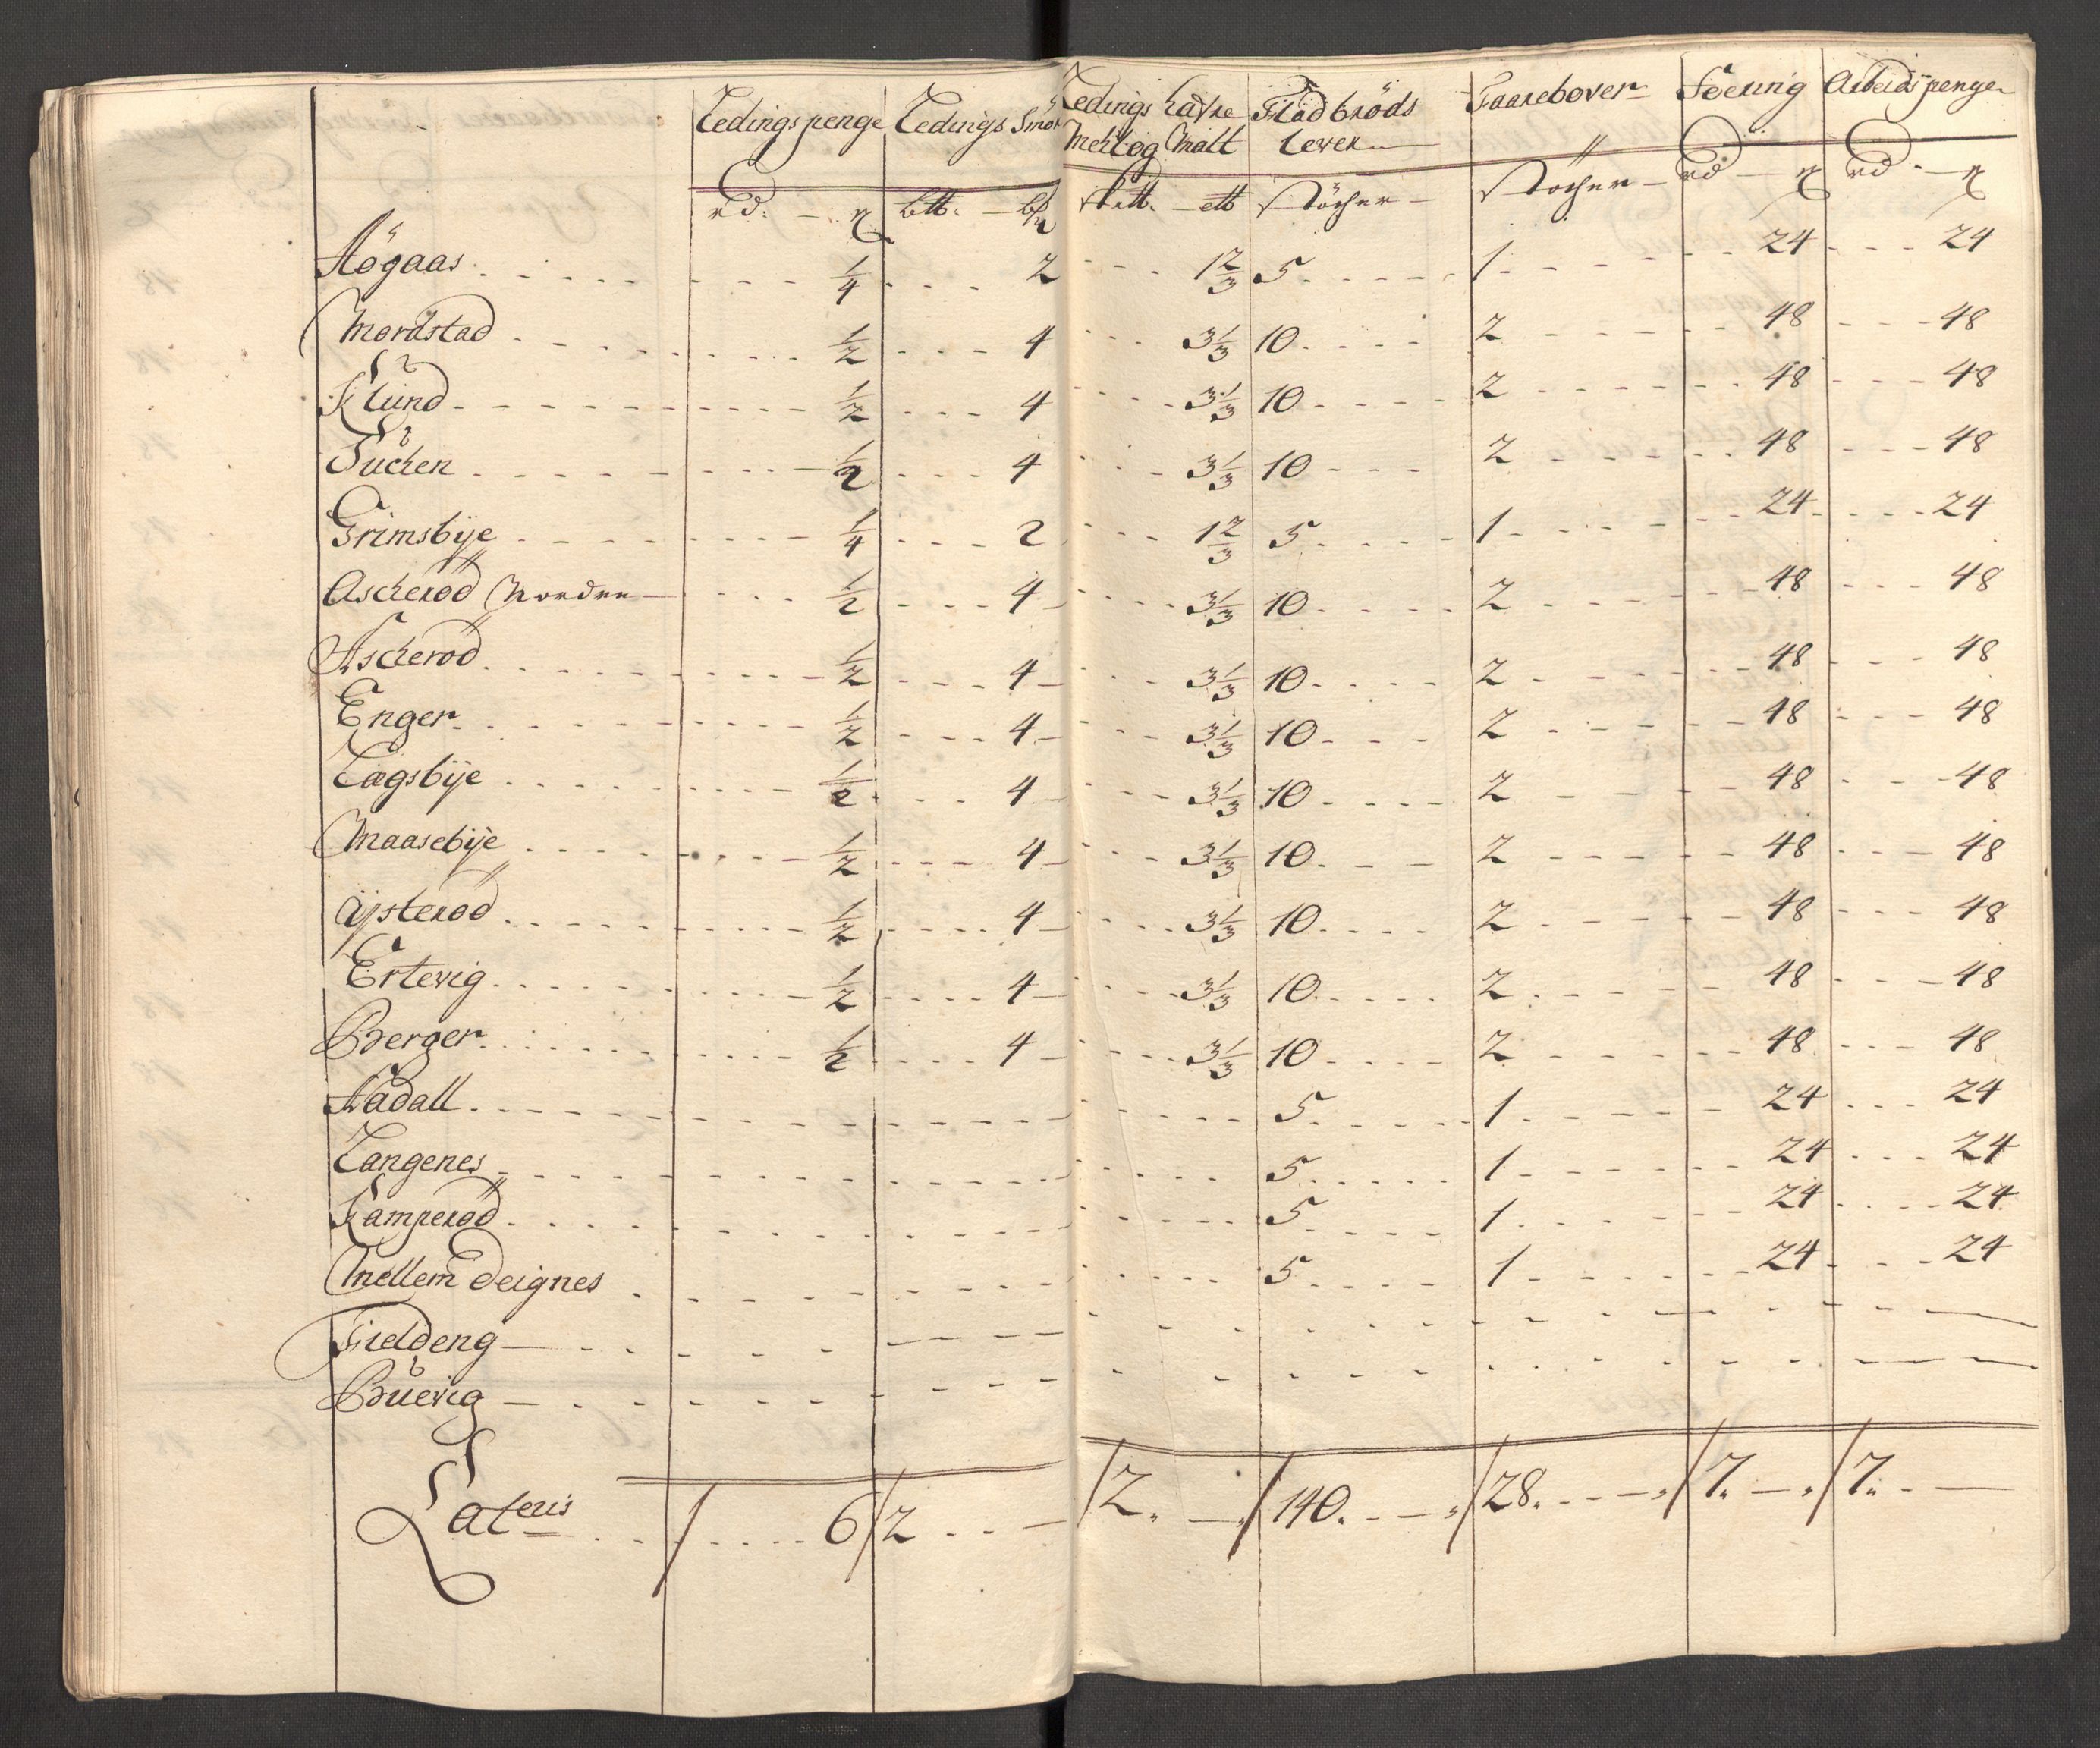 Ledingspenge Ledings Smör Ledings Hafre Fladbröds Faarebover Föering Arbeidspenge
Mehl og Malt Lever
rd: ß btt. stöcher stöcher rd ß rd ß
Högaas 1/4 2 1 2/3 5 1 24 24
Mordstad 1/2 4 3 1/3 10 2 48 48
Klund 1/2 4 3 1/3 10 2 48 48
Suchen 1/2 4 3 1/3 10 2 48 48
Grimsbÿe 1/4 2 1 2/3 5 1 24 24
Ascheröd Norden 1/2 4 3 1/3 10 2 48 48
Ascheröd 1/2 4 3 1/3 10 2 48 48
Enger 1/2 4 3 1/3 10 2 48 48
Lagsbÿe 1/2 4 3 1/3 10 2 48 48
Maasebÿe 1/2 4 3 1/3 10 2 48 48
Öÿsteröd 1/2 4 3 1/3 10 2 48 48
Ertevig 1/2 4 3 1/3 10 2 48 48
Berger 1/2 4 3 1/3 10 2 48 48
Aadall 5 1 24 24
Tangenes 5 1 24 24
Kamperöd 5 1 24 24
Mellem Deignes 5 1 24 24
Fieldeng
Buevig
Lateris 6 2 2 140 28 7 7